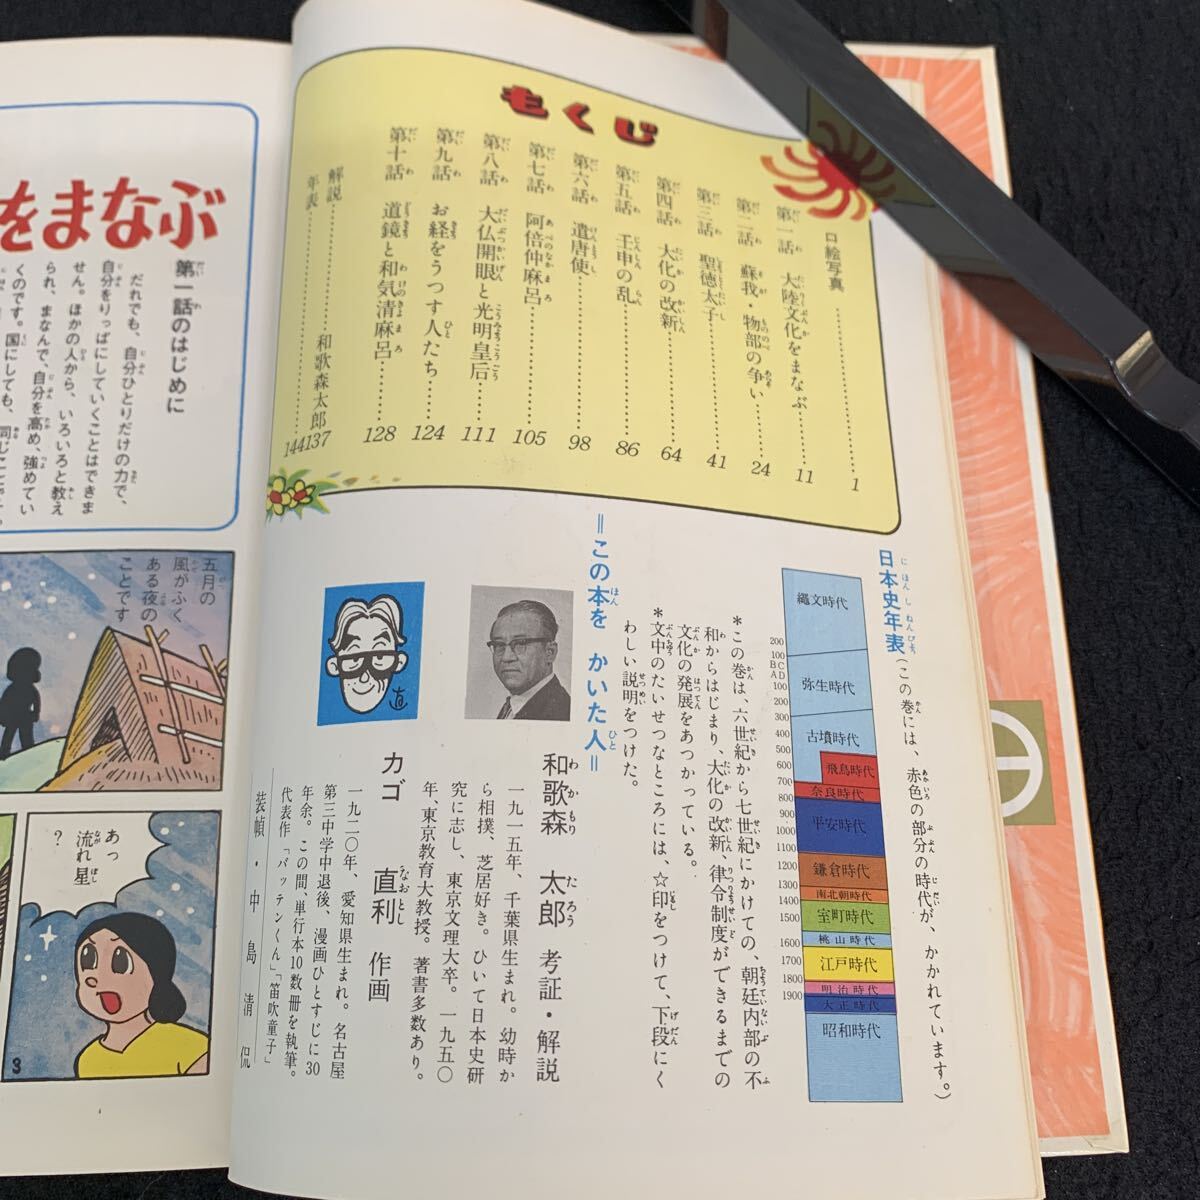 もくじ
口絵写真……1
第一話 大陸文化をまなぶ……11
第二話 蘇我・物部の争い……24
第三話 聖徳太子……41
第四話 大化の改新……64
第五話 壬申の乱……86
第六話 遣唐使……98
第七話 阿倍仲麻呂……105
第八話 大仏開眼と光明皇后……111
第九話 お経をうつす人たち……124
第十話 道鏡と和気清麻呂……128
解説……和歌森太郎 137
年表……144
日本史年表(この巻には、赤色の部分の時代が、かかれています。)
縄文時代
200
100
BC
AD
弥生時代
100
200
300
古墳時代
400
500
飛鳥時代
600
700
奈良時代
800
平安時代
900
1000
1100
1200
鎌倉時代
1300
南北朝時代
1400
室町時代
1500
桃山時代
1600
江戸時代
1700
1800
明治時代
1900
大正時代
昭和時代
*この巻は、六世紀から七世紀にかけての、朝廷内部の不
和からはじまり、大化の改新、律令制度ができるまでの
文化の発展をあつかっている。
*文中のたいせつなところには、☆印をつけて、下段にく
わしい説明をつけた。
=この本を かいた人=
和歌森 太郎 考証・解説
一九一五年、千葉県生まれ。幼時か
ら相撲、芝居好き。ひいて日本史研
究に志し、東京文理大卒。一九五〇
年、東京教育大教授。著書多数あり。
カゴ 直利 作画
一九二〇年、愛知県生まれ。名古屋
第三中学中退後、漫画ひとすじに30
年余。この間、単行本10数冊を執筆。
代表作「バッテンくん」「笛吹童子」
装幀・中島清侃
をまなぶ
第一話のはじめに
だれでも、自分ひとりだけの力で、
自分をりっぱにしていくことはできま
せん。ほかの人から、いろいろと教え
られ、まなんで、自分を高め、強めてい
くのです。国にしても、同じことです。
五月の
風がふく
ある夜の
ことです
あっ
流れ星
?
3